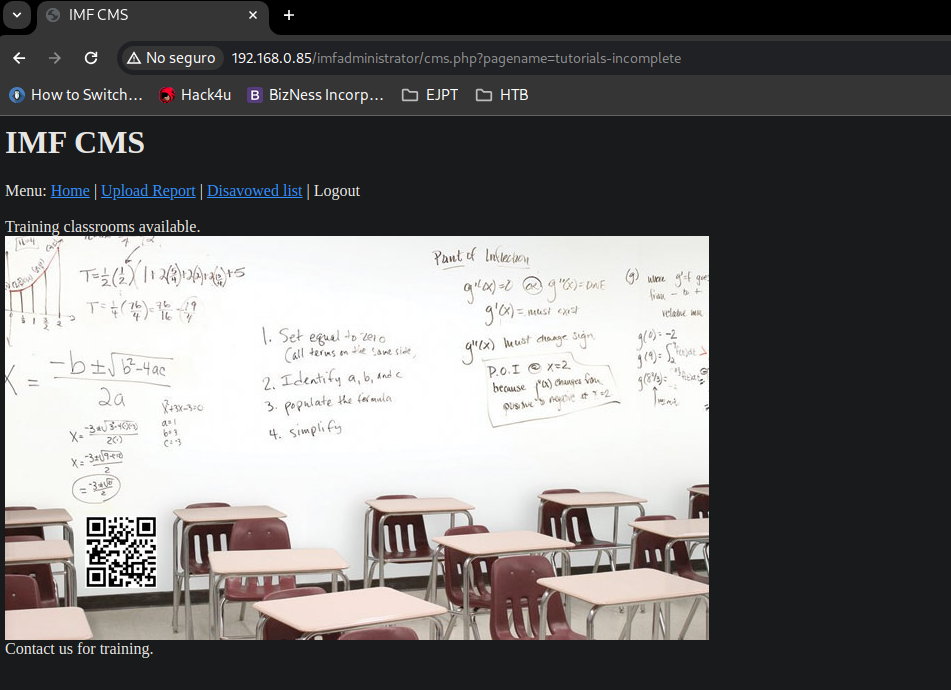 IMF CMS
No seguro
192.168.0.85/imfadministrator/cms.php?pagename=tutorials-incomplete
How to Switch...
Hack4u
B BizNess Incorp...
EJPT
HTB
IMF CMS
Menu: Home | Upload Report | Disavowed list | Logout
Training classrooms available.
Point of Inflection
1. Set equal to zero
(all terms on the same side,
2. Identify a, b, and c
3. populate the formula
4. simplify
-b ±√b²-4ac
2a
X =
g'(x) = must exist
g''(x) must change sign
P.O.I @ x=2
because
g(0) = -2
a=1
b=3
c=-3
Contact us for training.